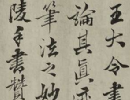 王大令書
論其真亦
筆法之妙
陵臣書贊